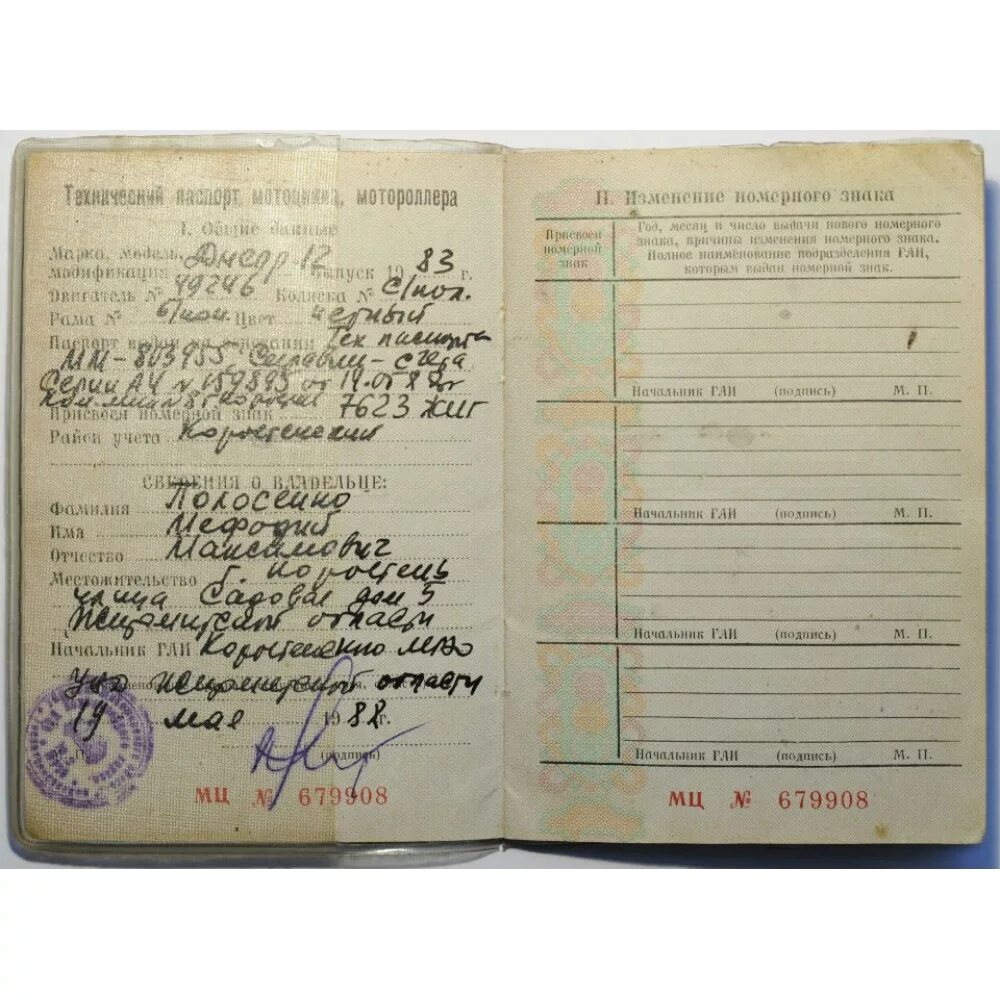 Технический паспорт мотоцикла, мотороллера
I. Общие данные
Марка, модель, Днепр 12
модификация выпуск 1983 г.
Двигатель № 49246 Коляска № С/ном.
Рама № б/ном. Цвет черный
Паспорт выдан на основании Тех паспорта
ММ-803955, Справки-счета
Серии АЧ № 159895 от 19.05.88г
Присвоен номерной знак 7623 ЖИГ
Район учета Коростенский
СВЕДЕНИЯ О ВЛАДЕЛЬЦЕ:
Фамилия
Имя Мефодий
Отчество Максимович
Местожительство г. Коростень
улица Садовая дом 5
Житомирской области
Начальник ГАИ
Житомирской области
19 мая 1988 г.
(подпись)
МЦ № 679908
II. Изменение номерного знака
Присвоен номерной знак
Год, месяц и число выдачи нового номерного
знака, причина изменения номерного знака.
Полное наименование подразделения ГАИ,
которым выдан номерной знак.
Начальник ГАИ (подпись) М. П.
Начальник ГАИ (подпись) М. П.
Начальник ГАИ (подпись) М. П.
Начальник ГАИ (подпись) М. П.
МЦ № 679908